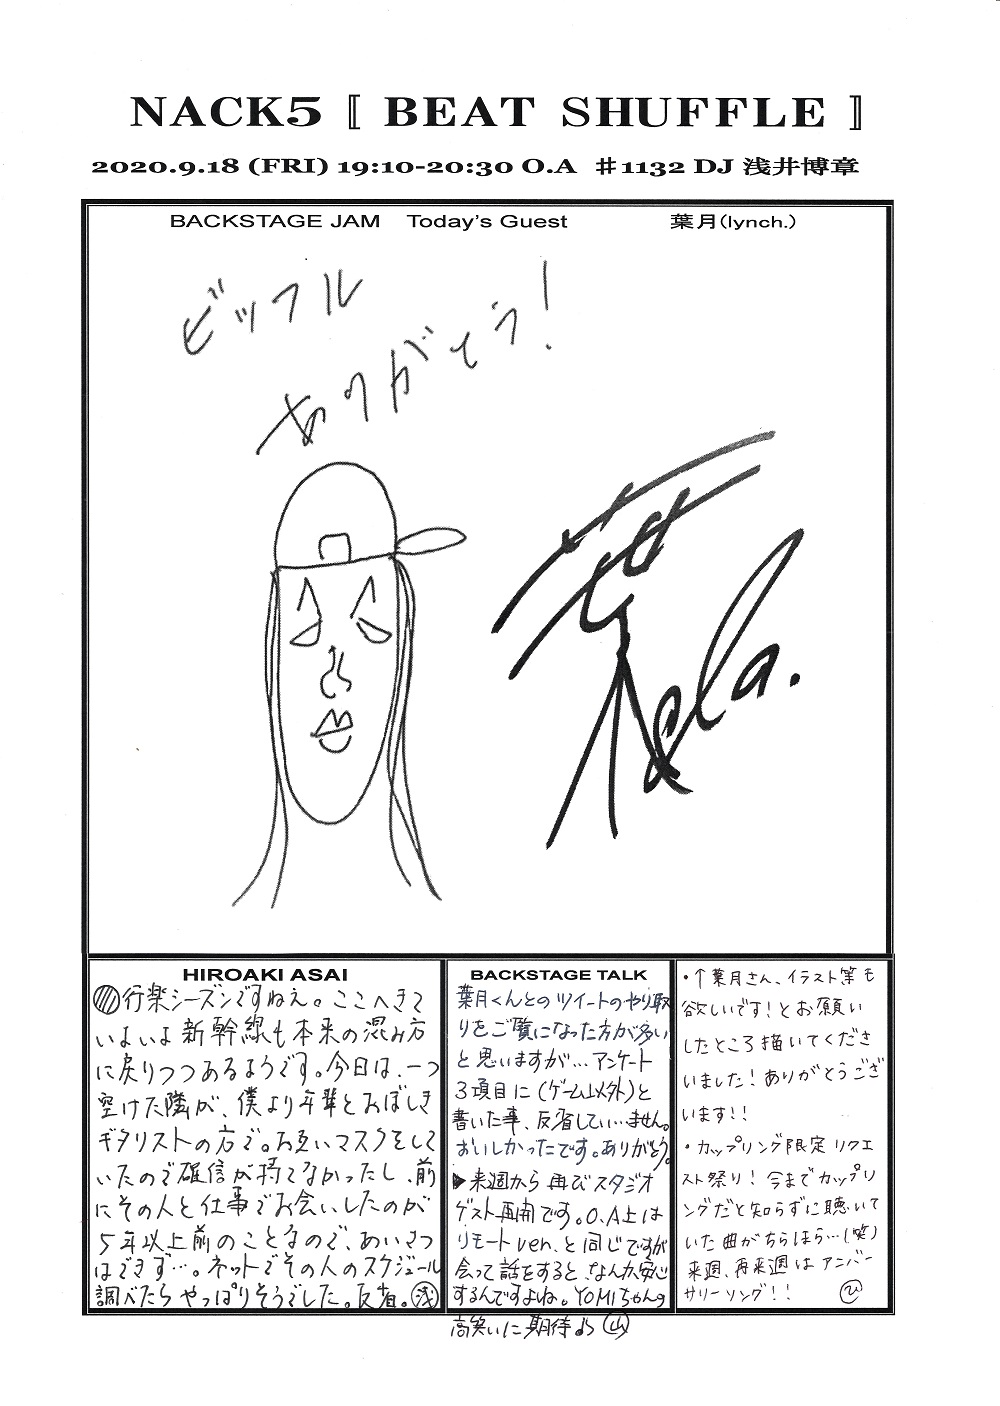 NACK5 〚 BEAT SHUFFLE 〛
2020.9.18 (FRI) 19:10-20:30 O.A ♯1132 DJ 浅井博章
BACKSTAGE JAM Today's Guest 葉月(lynch.)
ビッフル
ありがとう!
葉
HIROAKI ASAI
行楽シーズンですねえ。ここへきて
いよいよ新幹線も本来の混み方
に戻りつつあるようです。今日は、一つ
空けた隣が、僕より年輩とおぼしき
ギタリストの方で。お互いマスクをして
いたので確信が持てなかったし、前
にその人と仕事でお会いしたのが
5年以上前のことなので、あいさつ
はできず…。ネットでその人のスケジュール
調べたらやっぱりそうでした。反省。浅
BACKSTAGE TALK
葉月くんとのツイートのやり取
りをご覧になった方が多い
と思いますが…アンケート
3項目に(ゲーム以外)と
書いた事、反省してい…ません。
おいしかったです。ありがとう。
▶来週から再びスタジオ
ゲスト再開です。O.A上は
リモートver.と同じですが
会って話をすると、なんか安心
するんですよね。YOMIちゃんの
高笑いに期待♪ 山
・↑葉月さん、イラスト等も
欲しいです!とお願い
したところ描いてくださ
いました!ありがとうござ
います!!
・カップリング限定リクエ
スト祭り!今までカップリ
ングだと知らずに聴いて
いた曲がちらほら…(笑)
来週、再来週はアニバー
サリーソング!! ひ